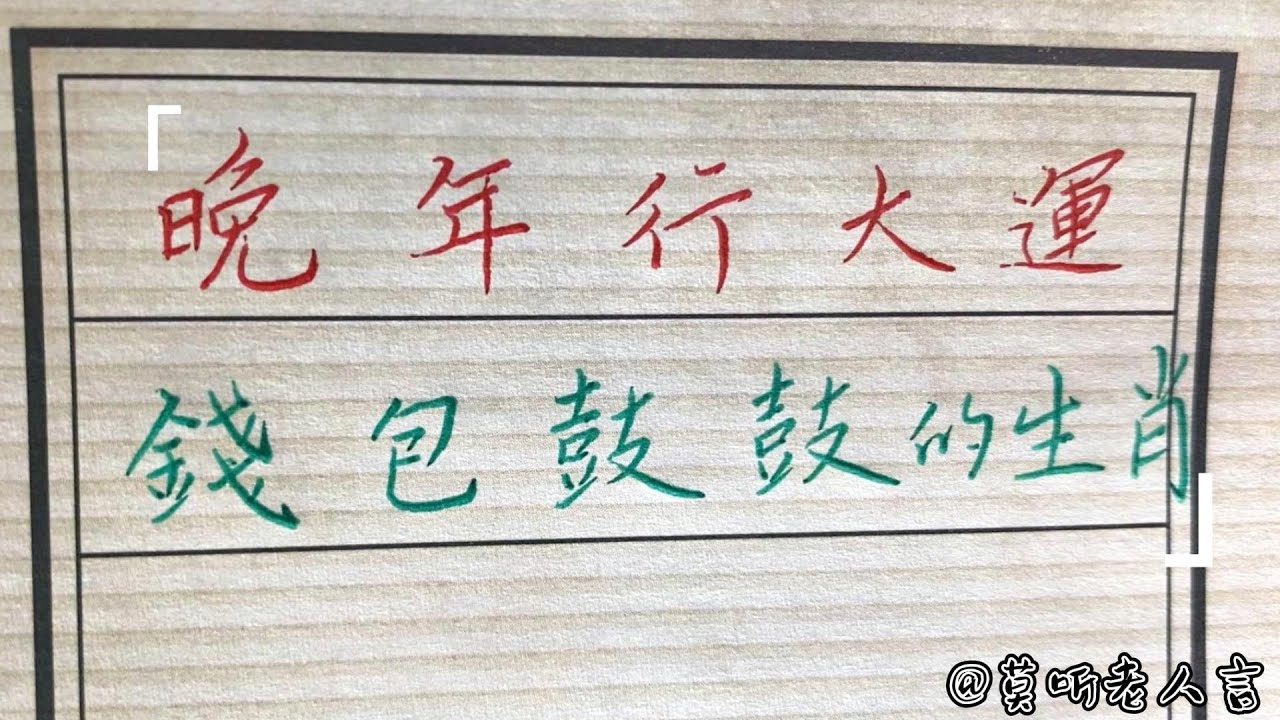 「晚年行大運
錢包鼓鼓的生肖」
@莫听老人言